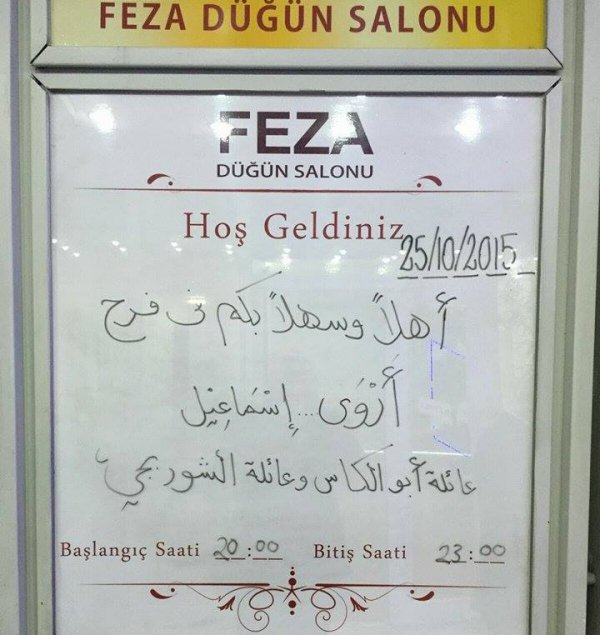 FEZA DÜĞÜN SALONU
FEZA
DÜĞÜN SALONU
Hoş Geldiniz
25/10/2015
أهلاً وسهلاً بكم في فرح
أَرْوَى... إِسْمَاعِيل
عائلة أبو الكاس وعائلة الشوربجي
Başlangıç Saati 20:00 Bitiş Saati 23:00